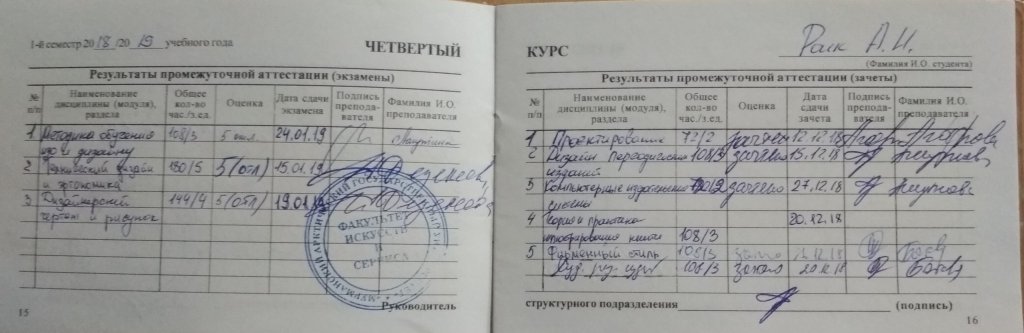 1-й семестр 2018/2019 учебного года ЧЕТВЕРТЫЙ
Результаты промежуточной аттестации (экзамены)
№ п/п Наименование дисциплины (модуля), раздела Общее кол-во час./з.ед. Оценка Дата сдачи экзамена Подпись преподавателя Фамилия И.О. преподавателя
1 Методика обучения 108/3 5 отл. 24.01.19
изо и дизайну
2 дизайн 180/5 5(отл) 15.01.19
и эргономика
3 Дизайнерский 144/4 5(отл) 19.01.19
чертеж и рисунок
МУРМАНСКИЙ АРКТИЧЕСКИЙ ГОСУДАРСТВЕННЫЙ
ФАКУЛЬТЕТ
ИСКУССТВ
И
СЕРВИСА
Руководитель
15
КУРС Раик А.И.
(Фамилия И.О. студента)
Результаты промежуточной аттестации (зачеты)
№ п/п Наименование дисциплины (модуля), раздела Общее кол-во час./з.ед. Оценка Дата сдачи зачета Подпись преподавателя Фамилия И.О. преподавателя
1 Проектирование 72/2 зачтено 12.12.18
2 Дизайн периодических 108/3 зачтено 15.12.18
изданий
3 Компьютерные издательские зачтено 27.12.18
системы
4 Теория и практика 20.12.18
иллюстрирования книги 108/3
5 Фирменный стиль 108/3 12.18
Худ. 108/3 зачтено 20.12.18
структурного подразделения (подпись)
16